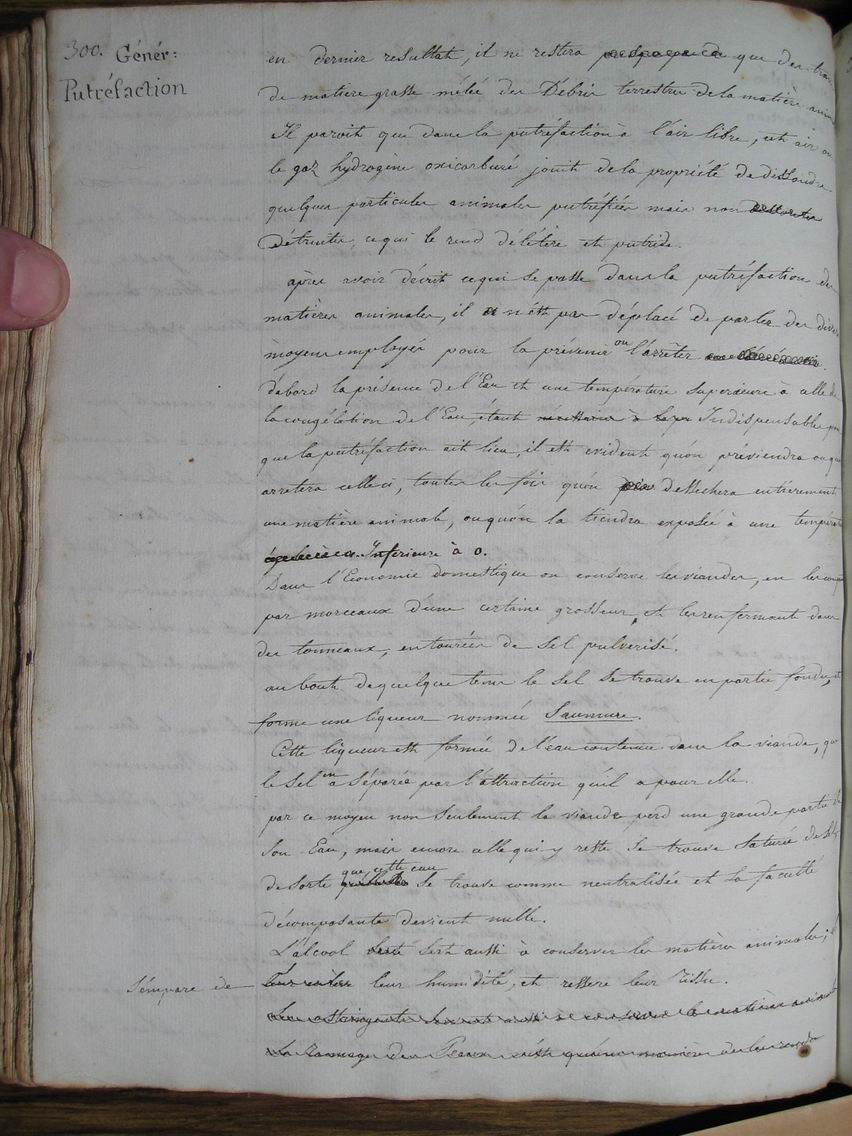 300. Génér:
Putréfaction
en dernier resultat, il ne restera que des
de matière grasse mélée des Débris terrestres de la matière anim
Il paroit que dans la putréfaction à l'air libre, cet air ou
le gaz hydrogène oxicarburé jouit de la propriété de dissoudre
quelques particules animales putréfiées mais non
Détruites, ce qui le rend délétère et putride.
après avoir décrit ce qui se passe dans la putréfaction des
matières animales, il n'est pas déplacé de parler des divers
moyens employés pour la prévenir ou l'arrêter
D'abord la présence de l'Eau et une température supérieure à celle de
la congélation de l'Eau, étant nécessaire à Indispensable pour
que la putréfaction ait lieu, il est evident qu'on préviendra ou qu'on
arretera celle ci, toutes les fois qu'on dessechera entièrement
une matière animale, ou qu'on la tiendra exposée à une températ
Inferieure à 0.
Dans l'Economie domestique on conserve les viandes, en les coupt
par morceaux d'une certaine grosseur, et les renfermant dans
des tonneaux, entourées de sel pulverisé.
au bout de quelque tems le sel se trouve en partie fondu, et
forme une liqueur nommée Saumure.
Cette liqueur est formée de l'eau contenue dans la viande, que
le sel en a séparée par l'attraction qu'il a pour elle.
par ce moyen non seulement la viande perd une grande partie de
son Eau, mais encore celle qui y reste se trouve saturée de sel,
de sorte que cette eau se trouve comme neutralisée et sa faculté
décomposante devient nulle.
L'alcool sert aussi à conserver les matières animales; il
s'empare de leur humidité, et ressere leur tissu.
Les astringents servent aussi à conserver les matières animales
Le tannage des Peaux n'est qu'une manière de les rendre